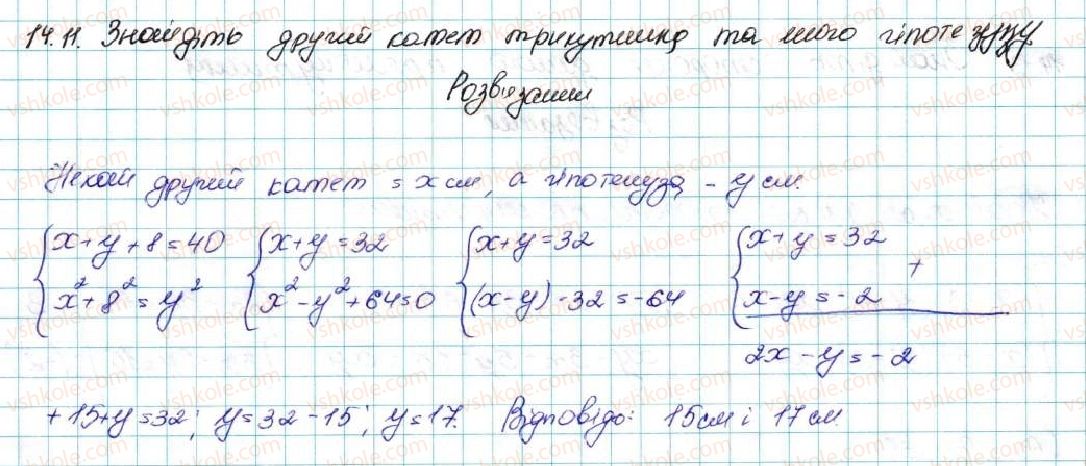 14.11. Знайдіть другий катет трикутника та його гіпотезузу
Розв'язання
Нехай другий катет = x см, а гіпотенуза - y см.
{x+y+8=40 {x+y=32 {x+y=32 {x+y=32
x²+8²=y² x²-y²+64=0 (x-y)·32=-64 x-y=-2 +
2x-y=-2
+15+y=32; y=32-15; y=17. Відповідь: 15см і 17см.